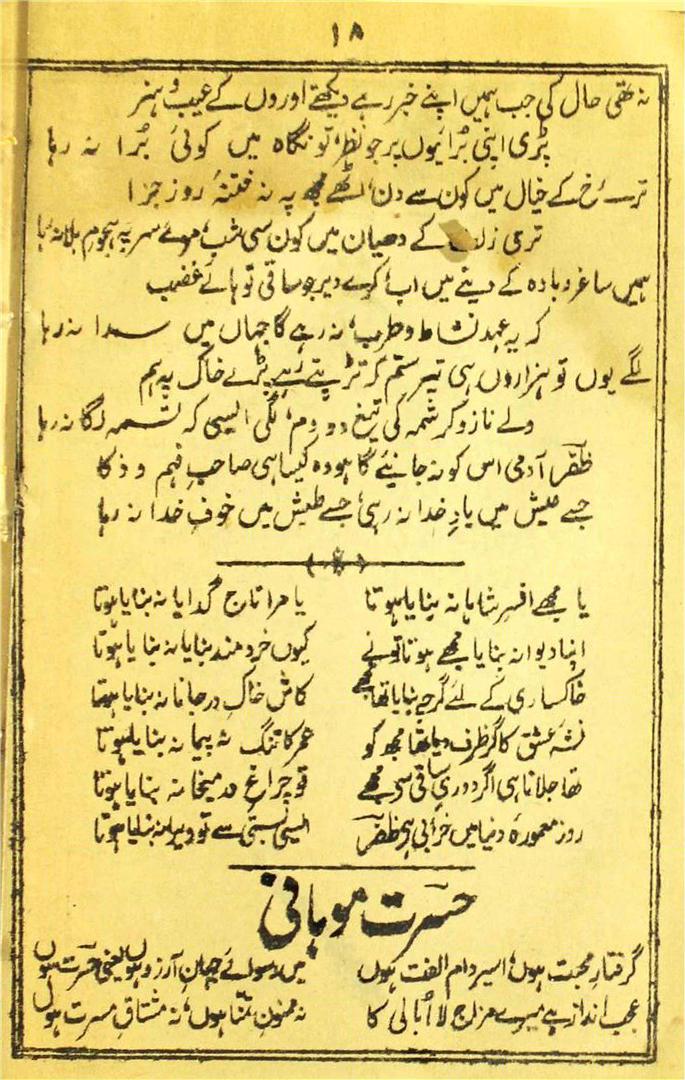 ۱۸
نہ تھی حال کی جب ہمیں اپنے خبر رہے دیکھتے اوروں کے عیب و ہنر
پڑی اپنی بُرائیوں پر جو نظر، تو نگاہ میں کوئی بُرا نہ رہا
ترے رُخ کے خیال میں کون سے دن اُٹھے مجھ پہ نہ فتنۂ روزِ جزا
تری زلف کے دھیان میں کون سی شب، مرے سر پہ ہجومِ بلا نہ رہا
ہمیں ساغرِ بادہ کے دینے میں اب، کرے دیر جو ساقی تو ہائے غضب
کہ یہ عہدِ نشاط و طرب، نہ رہے گا جہاں میں سدا نہ رہا
لگے یوں تو ہزاروں ہی تیرِ ستم کہ تڑپتے رہے پڑے خاک پہ ہم
ولے ناز و کرشمہ کی تیغِ دو دم، لگی ایسی کہ تسمہ لگا نہ رہا
ظفرؔ آدمی اس کو نہ جانیئے گا ہو وہ کیسا ہی صاحبِ فہم و ذکا
جسے عیش میں یادِ خدا نہ رہی، جسے طیش میں خوفِ خدا نہ رہا
یا مجھے افسرِ شاہا نہ بنایا ہوتا یا مرا تاج گدایا نہ بنایا ہوتا
اپنا دیوانہ بنایا مجھے ہوتا تو نے کیوں خردمند بنایا نہ بنایا ہوتا
خاکساری کے لئے گرچہ بنایا تھا مجھے کاش خاکِ درِ جانانہ بنایا ہوتا
نشۂ عشق کا گر ظرف دیا تھا مجھ کو عمر کا تنگ نہ پیمانہ بنایا ہوتا
تھا جلانا ہی اگر دوریِ ساقی سے مجھے تو چراغِ درِ میخانہ بنایا ہوتا
روز معمورۂ دنیا میں خرابی ہے ظفرؔ ایسی بستی سے تو ویرانہ بنایا ہوتا
حسرت موہانی
گرفتارِ محبت ہوں، اسیرِ دامِ الفت ہوں میں رسوائے جہانِ آرزو ہوں یعنی حسرتؔ ہوں
عجب انداز ہے میرے مزاجِ لا اُبالی کا نہ ممنونِ تمنا ہوں، نہ مشتاقِ مسرت ہوں